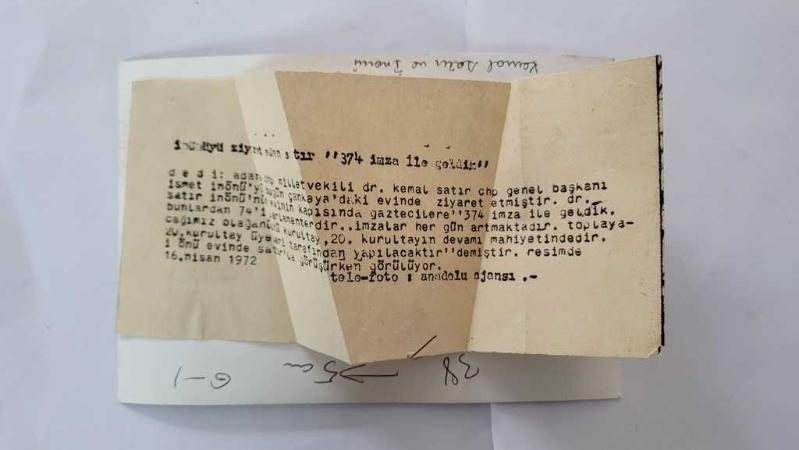 Kemal Satır ve İnönü
inönüyü ziyaret eden satır "374 imza ile geldik"
d e d i: adana chp milletvekili dr. kemal satır chp genel başkanı
ismet inönü'yü bugün çankaya'daki evinde ziyaret etmiştir. dr.
satır inönü'nün evinin kapısında gaztecilere"374 imza ile geldik.
bunlardan 74'i parlamenterdir..imzalar her gün artmaktadır. toplaya-
cağımız olağanüstü kurultay,20. kurultayın devamı mahiyetindedir.
20.kurultay üyeleri tarafından yapılacaktır"demiştir. resimde
i önü evinde satır'la görüşürken görülüyor.
16.nisan 1972
tele-foto : anadolu ajansı .-
38 → 25 cm 6-1